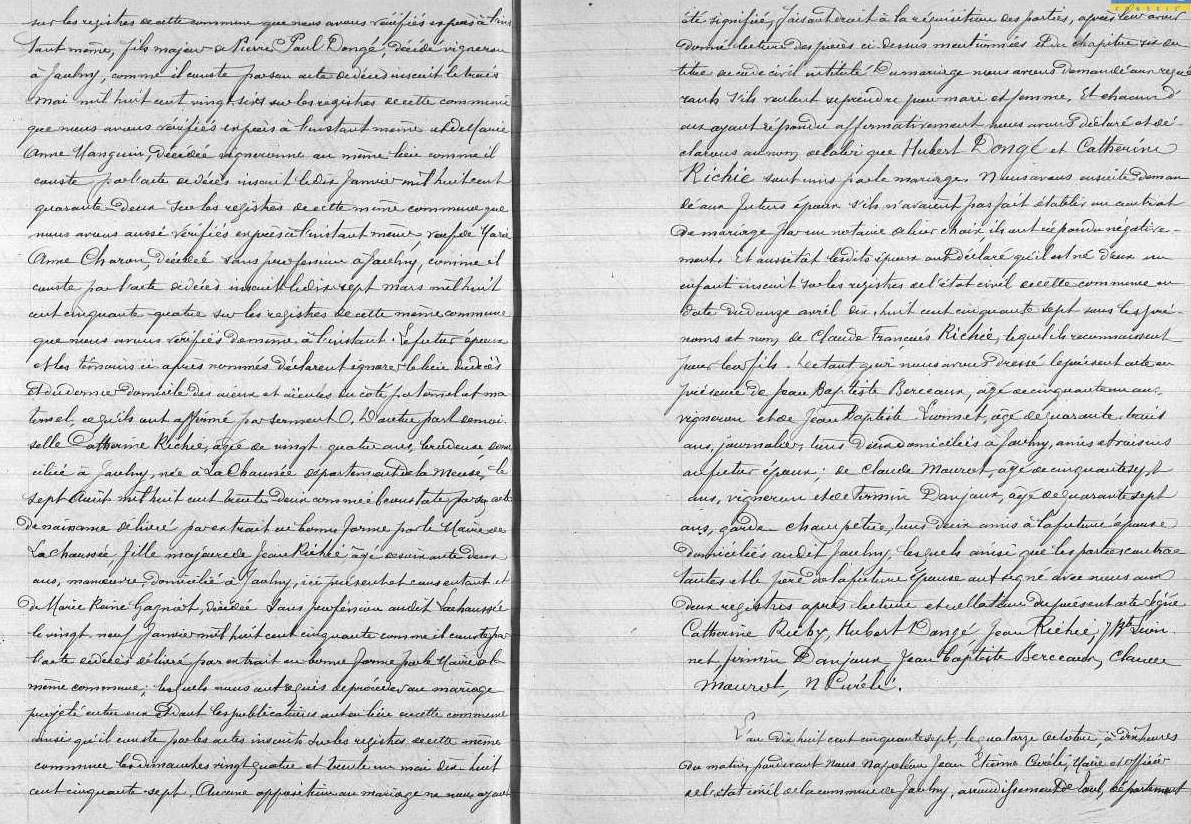 sur les registres de cette commune que nous avons vérifiés exprès à l'ins
tant même, fils majeur de Pierre Paul Dongé, décédé vigneron
à Jaulny, comme il conste par son acte de décès inscrit le trois
mai mil huit cent vingt six sur les registres de cette commune
que nous avons vérifiés exprès à l'instant même et de Marie
Anne Mangin, décédée vigneronne au même lieu comme il
conste par l'acte de décès inscrit le dix Janvier mil huit cent
quarante Deux sur les registres de cette même commune que
nous avons aussi vérifiés exprès à l'instant même veuf de Marie
Anne Charon, décédée sans profession à Jaulny, comme il
conste par l'acte de décès inscrit le dix sept mars mil huit
cent cinquante quatre sur les registres de cette même commune
que nous avons vérifiés de même à l'instant. Le futur époux
et les témoins ci après nommés déclarent ignorer le lieu du décès
et du dernier domicile des aïeux et aïeules du côté paternel et ma
ternel, ce qu'ils ont affirmé par serment. D'autre part demoi
selle Catherine Richié, âgée de vingt quatre ans, brodeuse domi
ciliée à Jaulny, née à La Chaussée département de la Meuse, le
sept août mil huit cent trente deux comme il constate par son acte
de naissance délivré par extrait en bonne forme par le Maire de
La chaussée, fille majeure de Jean Richié âgé de soixante deux
ans, manœuvre, domicilié à Jaulny, ici présent et consentant et
de Marie Reine Gagniot, décédée sans profession audit Lachaussée
le vingt neuf Janvier mil huit cent cinquante comme il conste par
l'acte de décès délivré par extrait en bonne forme par le Maire de la
même commune; lesquels nous ont requis de procéder au mariage
projeté entre eux et dont les publications ont eu lieu en cette commune
ainsi qu'il conste par les actes inscrits sur les registres de cette même
commune les dimanches vingt quatre et trente un mai dix huit
cent cinquante sept. Aucune opposition au mariage ne nous ayant
été signifiée, faisant droit à la réquisition des parties, après leur avoir
donné lecture des pièces ci dessus mentionnées et du chapitre six du
titre du code civil intitulé Du mariage nous avons demandé aux requé
rants s'ils veulent se prendre pour mari et femme. Et chacun d'
eux ayant répondu affirmativement nous avons déclaré et dé-
clarons au nom de la loi que Hubert Dongé et Catherine
Richié sont unis par le mariage. Nous avons ensuite deman
dé aux futurs époux s'ils n'avaient pas fait établir un contrat
de mariage par un notaire de leur choix ils ont répondu négative-
ment. Et aussitôt lesdits époux ont déclaré qu'il est né d'eux un
enfant inscrit sur les registres de l'état civil de cette commune en
date du douze avril dix huit cent cinquante sept sous les pré-
noms et nom de Claude François Richié, lequel ils reconnaissent
pour leur fils. De tout quoi nous avons dressé le présent acte en
présence de Jean Baptiste Berceaux, âgé de cinquante un ans
vigneron et de Jean Baptiste Lionnet, âgé de quarante trois
ans, journalier, tous deux domiciliés à Jaulny, amis et voisins
au futur époux; de Claude Maurot, âgé de cinquante sept
ans, vigneron et de Firmin Danjoux, âgé de quarante sept
ans, garde champêtre, tous deux amis à la future épouse
domiciliés audit Jaulny, lesquels ainsi que les parties contrac
tantes et le père de la future épouse ont signé avec nous aux
deux registres après lecture et collation du présent acte Signé
Catherine Richy, Hubert Dongé Jean Richié J Bte Lion-
net firmin Danjoux Jean Baptiste Berceaux, Claude
Maurot, N Curéli.
L'an Dix huit cent cinquante sept, le quatorze octobre, à dix heures
du matin, pardevant Nous Napoléon Jean Etienne Curéli, Maire et officier
de l'état civil de la commune de Jaulny, arrondissement de Toul, département